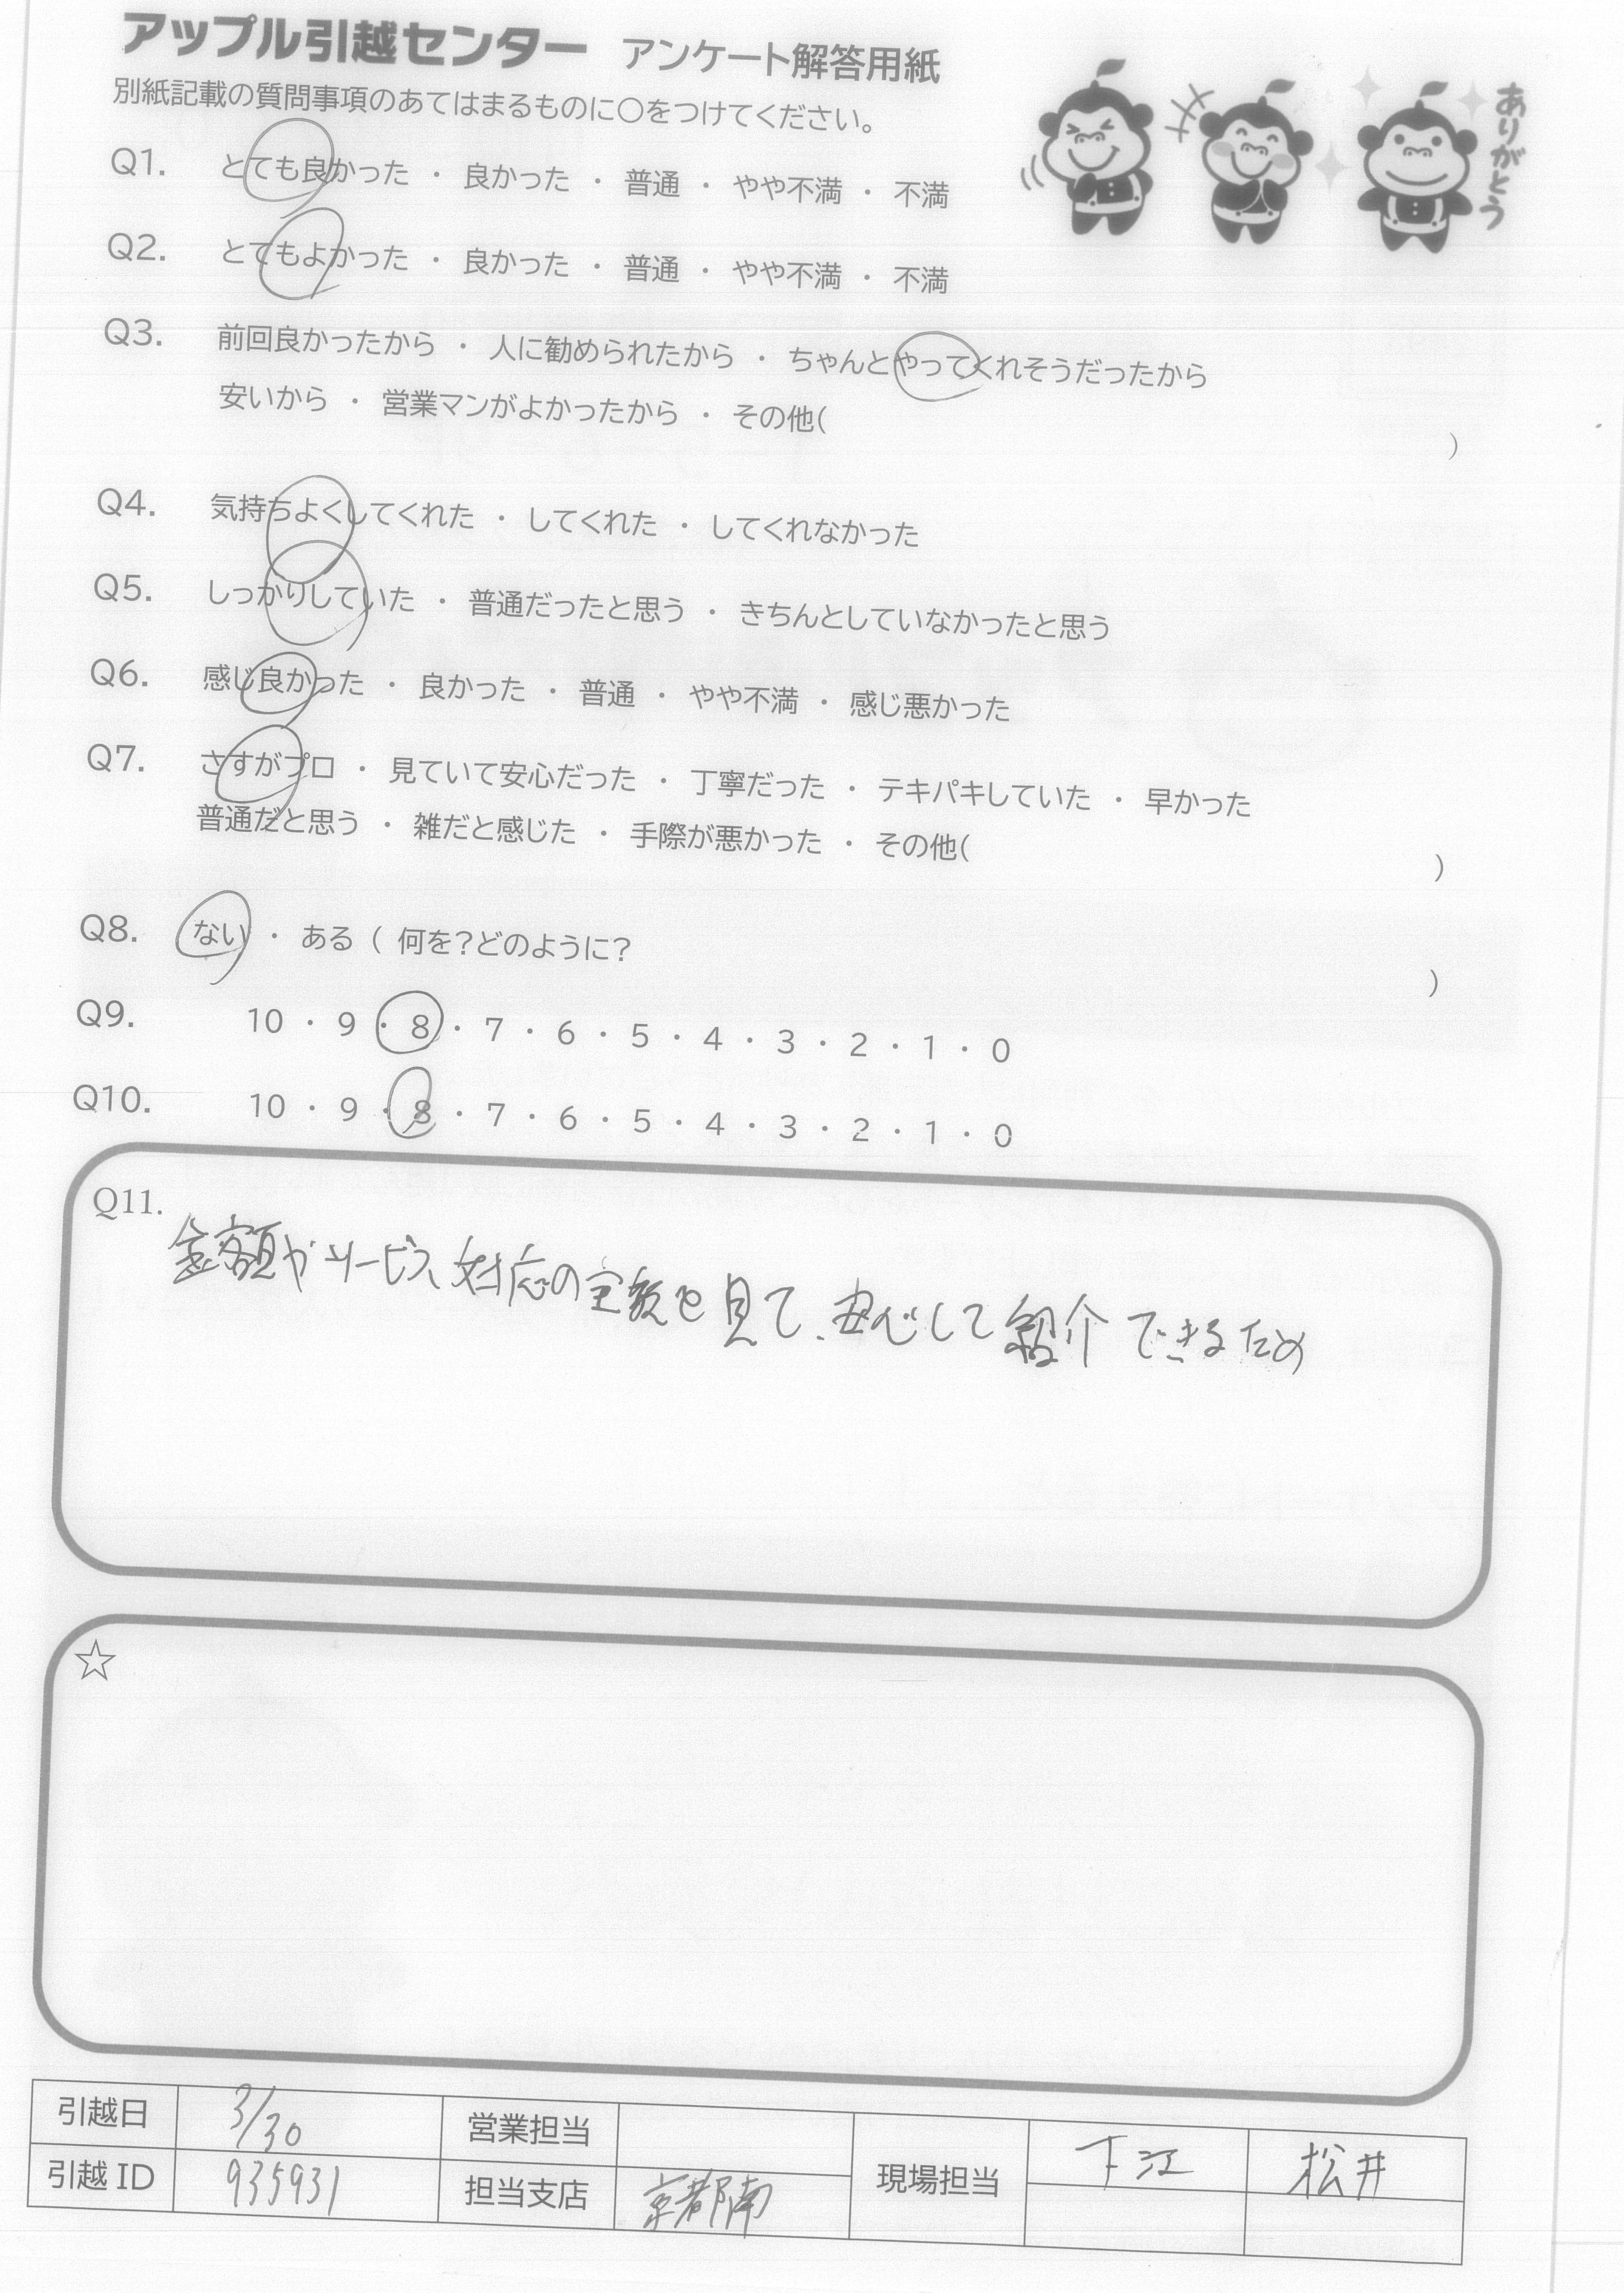 アップル引越センター アンケート解答用紙
別紙記載の質問事項のあてはまるものに○をつけてください。
ありがとう
Q1. とても良かった ・ 良かった ・ 普通 ・ やや不満 ・ 不満
Q2. とてもよかった ・ 良かった ・ 普通 ・ やや不満 ・ 不満
Q3. 前回良かったから ・ 人に勧められたから ・ ちゃんとやってくれそうだったから
安いから ・ 営業マンがよかったから ・ その他( )
Q4. 気持ちよくしてくれた ・ してくれた ・ してくれなかった
Q5. しっかりしていた ・ 普通だったと思う ・ きちんとしていなかったと思う
Q6. 感じ良かった ・ 良かった ・ 普通 ・ やや不満 ・ 感じ悪かった
Q7. さすがプロ ・ 見ていて安心だった ・ 丁寧だった ・ テキパキしていた ・ 早かった
普通だと思う ・ 雑だと感じた ・ 手際が悪かった ・ その他( )
Q8. ない ・ ある ( 何を?どのように? )
Q9. 10 ・ 9 ・ 8 ・ 7 ・ 6 ・ 5 ・ 4 ・ 3 ・ 2 ・ 1 ・ 0
Q10. 10 ・ 9 ・ 8 ・ 7 ・ 6 ・ 5 ・ 4 ・ 3 ・ 2 ・ 1 ・ 0
Q11.
金額やサービス、対応の実態を見て、安心して紹介できるため
☆
引越日 3/30 営業担当 現場担当 下江 松井
引越ID 935931 担当支店 京都南